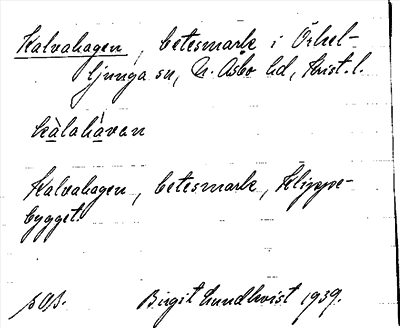 Kalvahagen, betesmark i Örkel-
ljunga sn, N. Åsbo hd, Krist. l.
kàlahàvan
Kalvahagen, betesmark, Klippe-
bygget.
Birgit Lundkvist 1939.